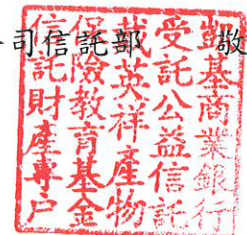 司信託部 敬
凱基商業銀行
受託公益信託
戴英祥產物
保險教育基金
信託財產專戶